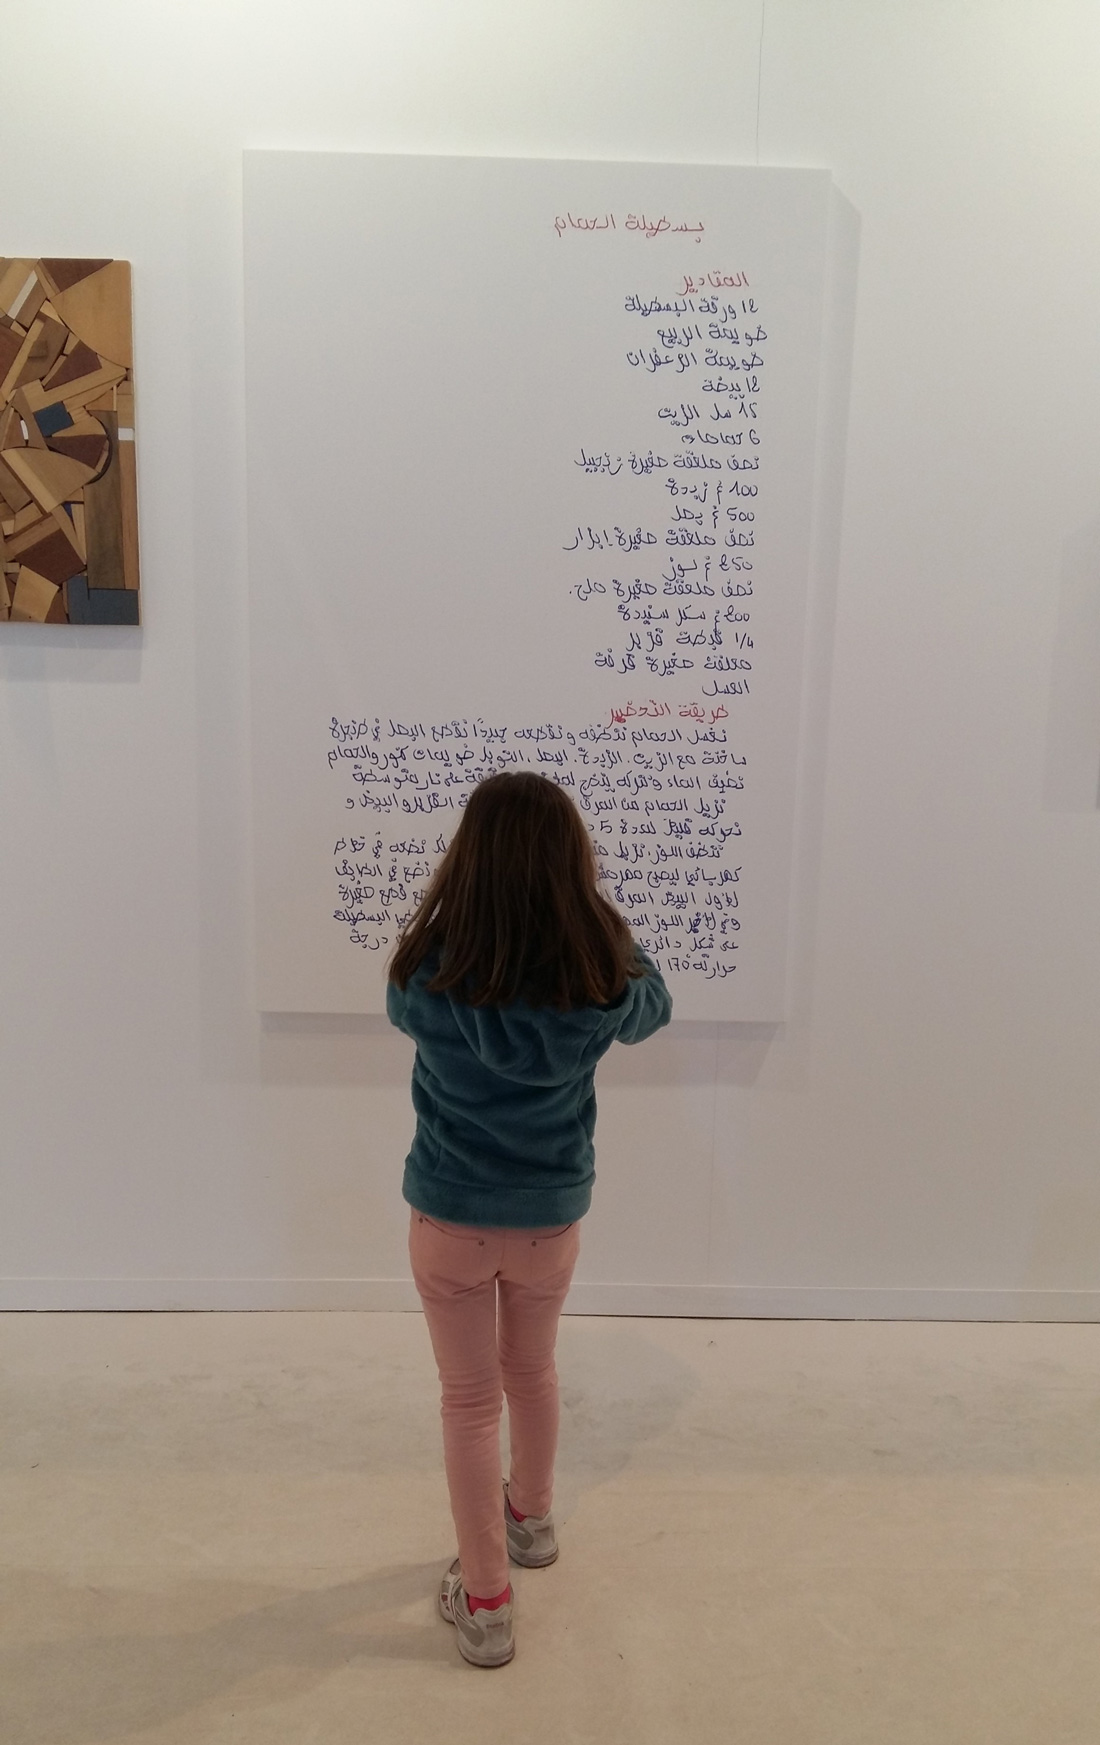 بسطيلة الحمام
المقادير
12 ورقة البسطيلة
ضويمة الربيع
ضويمة الزعفران
12 بيضة
15 سل الزيت
6 حمامات
نصف ملعقة صغيرة زنجبيل
100 غ زبدة
500 غ بصل
نصف ملعقة صغيرة إبزار
250 غ لوز
نصف ملعقة صغيرة ملح.
200 غ سكر سنيدة
1/4 قبضة قزبر
معلقة صغيرة قرفة
العسل
طريقة التحضير
نغسل الحمام ننظفه و نقطعه جيدًا نقطع البصل في طنجرة
ساخنة مع الزيت. الزبدة. البصل. التوبل ضويمات كمور والحمام
نضيف الماء ونتركه ينضج على نار متوسطة
نزيل الحمام من المرق القزبر والبيض و
نحركه قليلا لمدة 5
ننظف اللوز. نزيل نضعه في خلاط
كهربائي ليصبح نضع في الطابق
الأول البيض المرق قطع صغيرة
وفي الأخير اللوز البسطيلة
على شكل دائري درجة
حرارته 170°